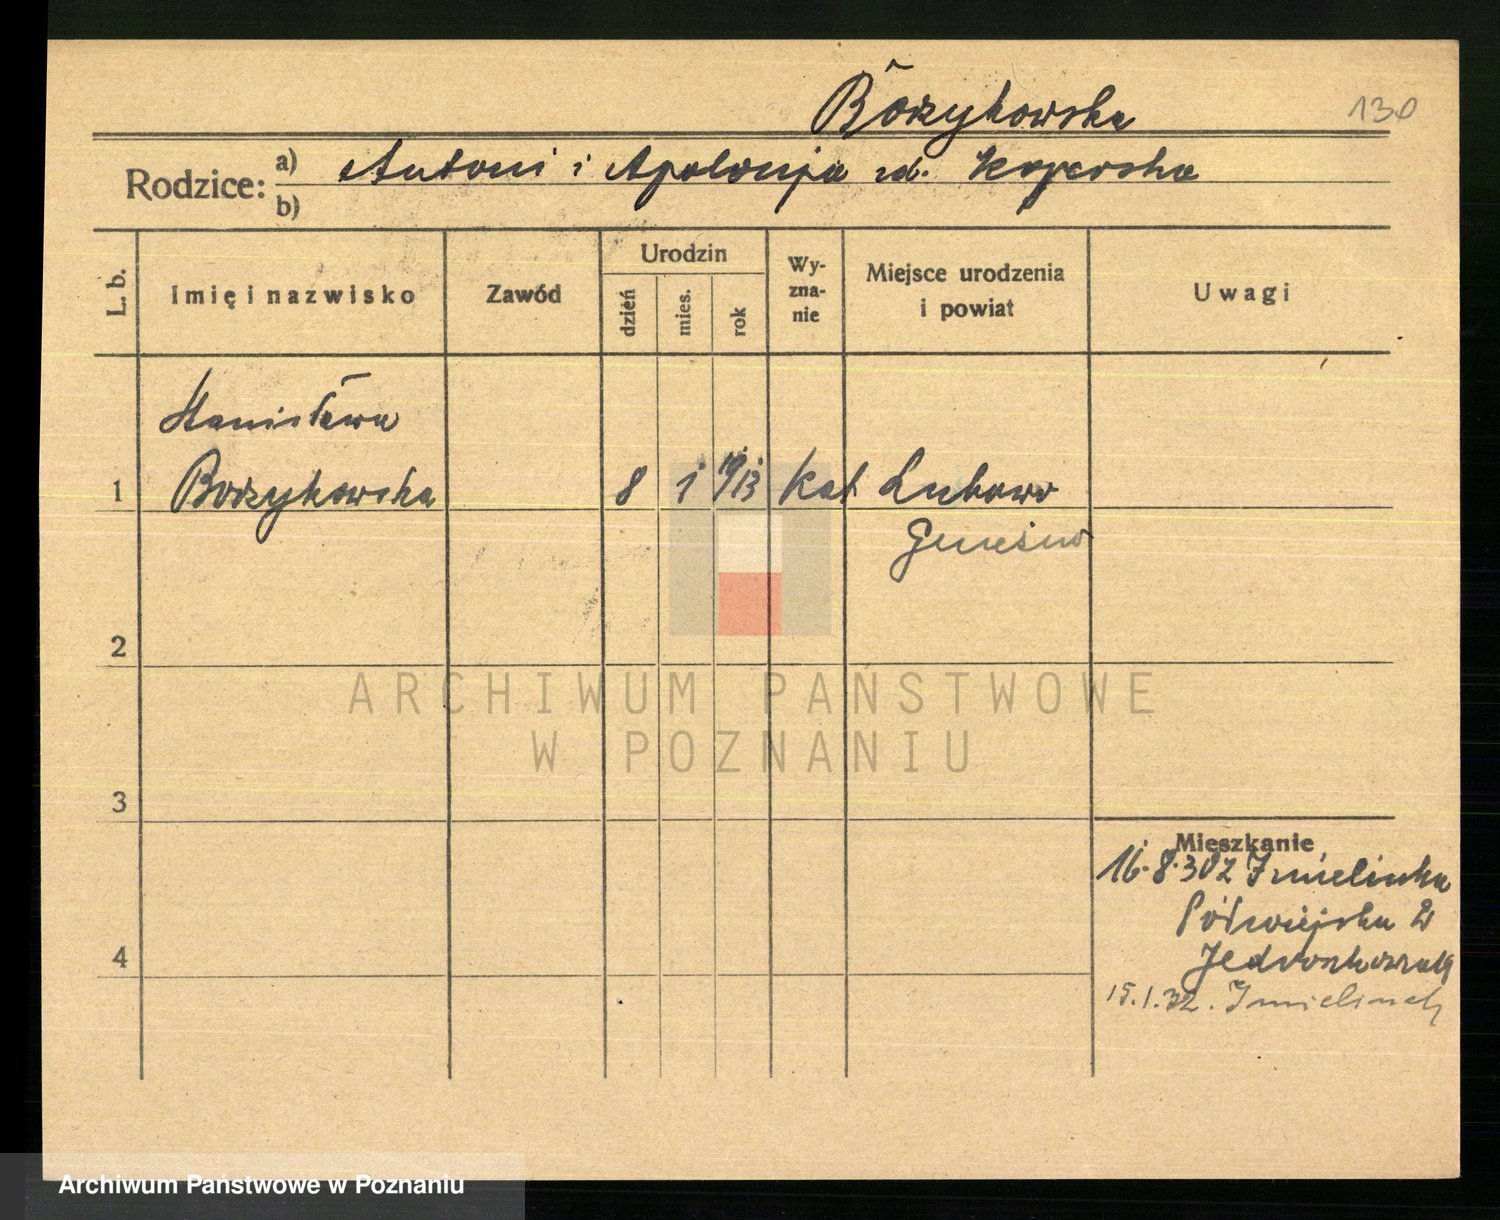 Borzykowska
130
Rodzice: a) Antoni i Apolonja zd. Koperska
b)
L. b.
Imię i nazwisko
Zawód
Urodzin
dzień
mies.
rok
Wy-
zna-
nie
Miejsce urodzenia
i powiat
Uwagi
Stanisława
1 Borzykowska 8 1 1913 kat Lubowo
Gniezno
2
ARCHIWUM PAŃSTWOWE
W POZNANIU
3
Mieszkanie
16.8.30 z Imielinka
Półwiejska 2
15.1.32. Imielinek
4
Archiwum Państwowe w Poznaniu